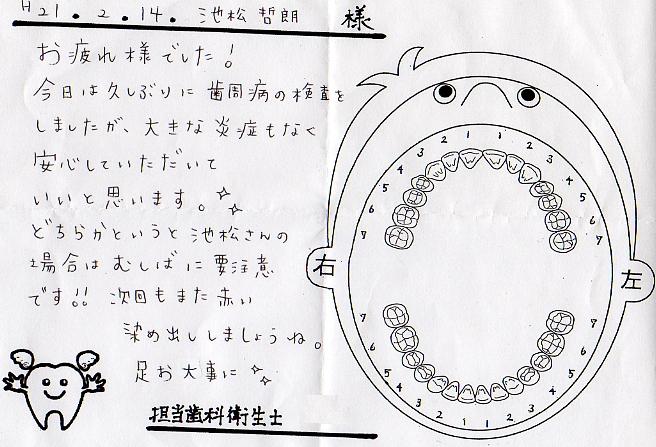 H21.2.14. 池松 哲朗 様
お疲れ様でした!
今日は久しぶりに歯周病の検査を
しましたが、大きな炎症もなく
安心していただいて
いいと思います。
どちらかというと池松さんの
場合はむしばに要注意
です!! 次回もまた赤い
染め出ししましょうね。
足お大事に
担当歯科衛生士
7 6 5 4 3 2 1 1 2 3 4 5 6 7
右 左
7 6 5 4 3 2 1 1 2 3 4 5 6 7